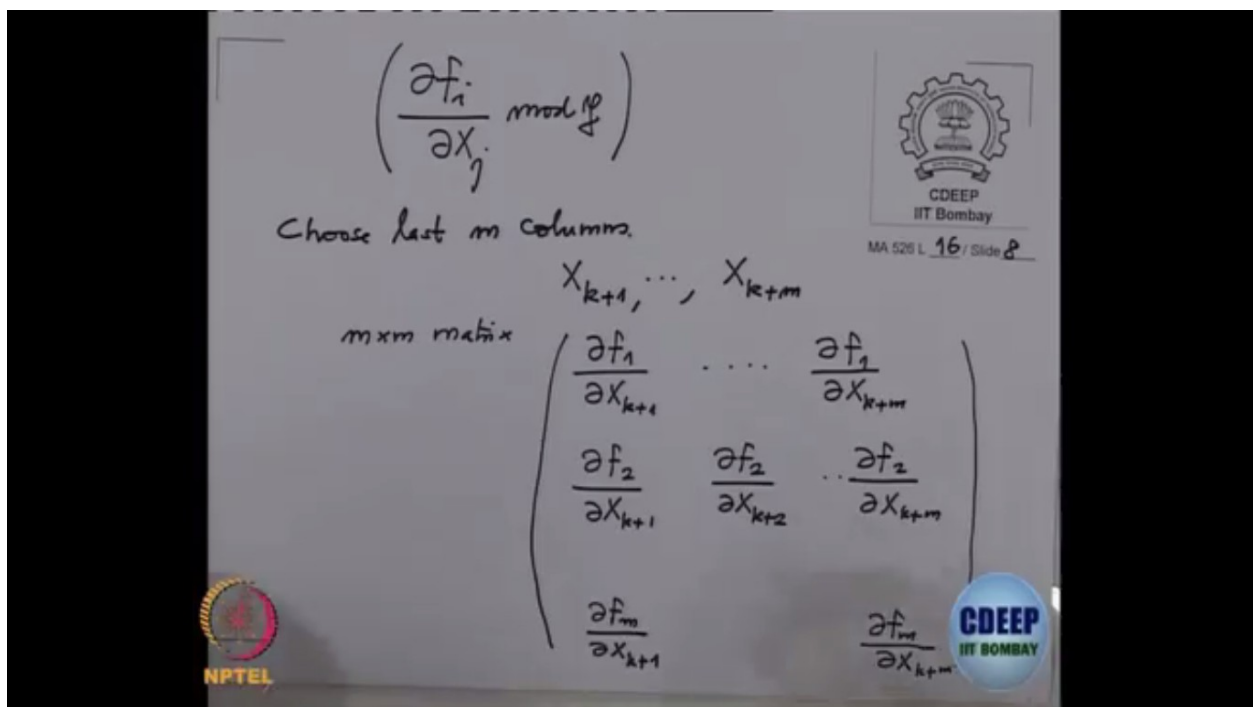 ( ∂f_i / ∂X_j mod 𝔭 )
CDEEP
IIT Bombay
MA 526 L 16 / Slide 8
Choose last m columns.
X_{k+1}, ..., X_{k+m}
m×m matrix
∂f_1/∂X_{k+1} .... ∂f_1/∂X_{k+m}
∂f_2/∂X_{k+1} ∂f_2/∂X_{k+2} .. ∂f_2/∂X_{k+m}
∂f_m/∂X_{k+1} ∂f_m/∂X_{k+m}
NPTEL
CDEEP
IIT BOMBAY